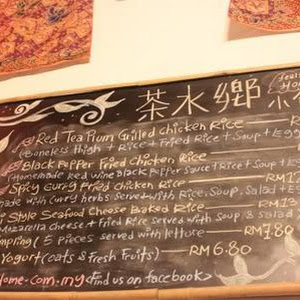 茶水鄉
Red Tea Plum Grilled Chicken Rice
(Boneless thigh + Rice + Fried Rice + Soup + Eg
Black Pepper Fried Chicken Rice
(Homemade Red wine Black Pepper Sauce + Rice + Soup + E
Spicy Curry Fried Chicken Rice
made with curry herbs served with Rice, Soup, Salad + E
i Style Seafood Cheese Baked Rice RM13
Mozarella cheese + Fried Rice Served with Soup & Salad
mpling (5 pieces served with lettuce RM7.80
Yogurt (oats & Fresh Fruits) RM6.80
Home.com.my <find us on facebook>